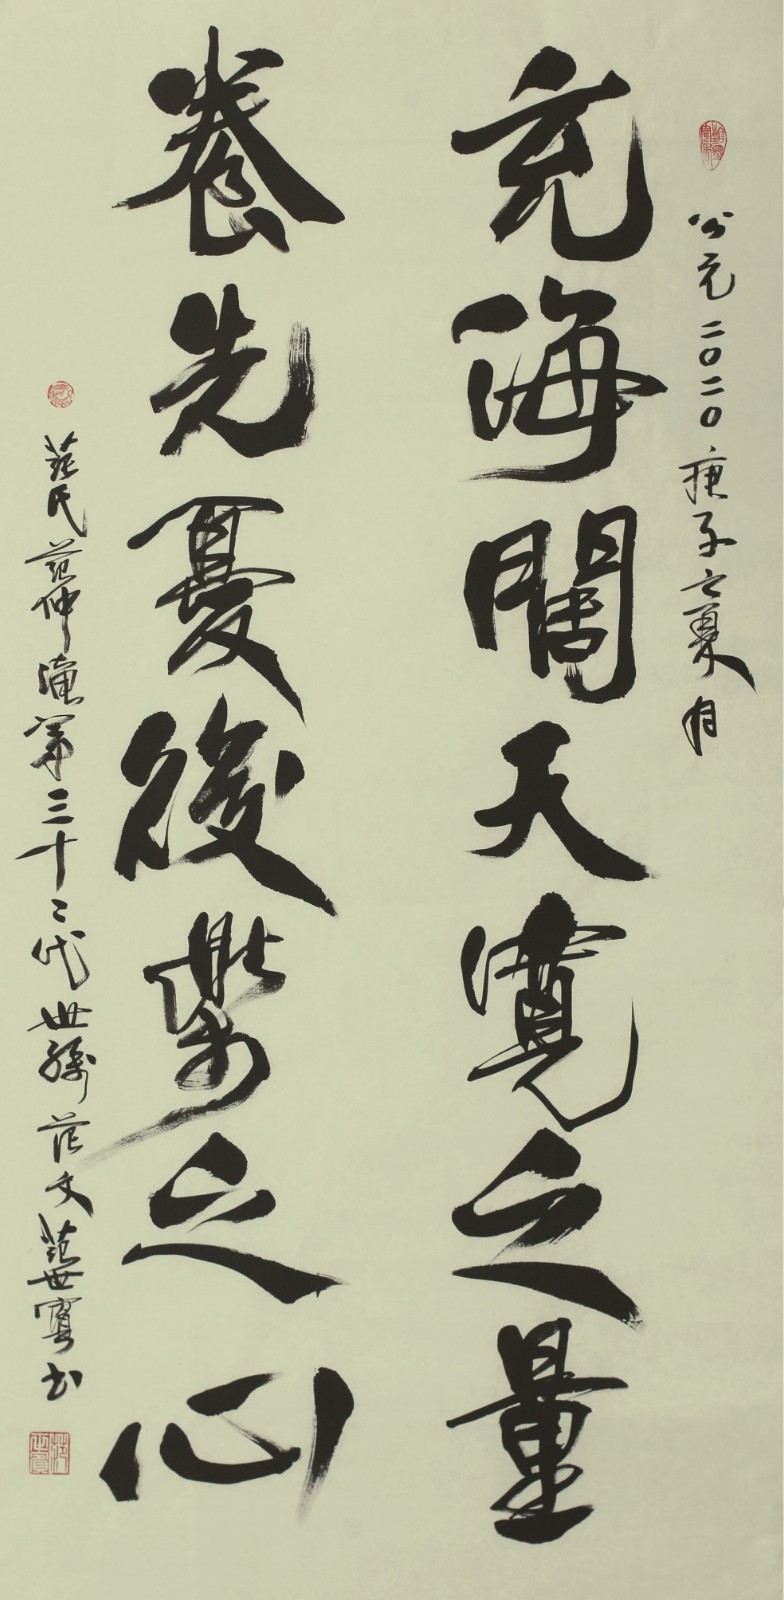 公元二〇二〇庚子之夏月
充海闊天寬之量
養先憂後樂之心
范氏范仲淹第三十二代世孫范文范世寬书